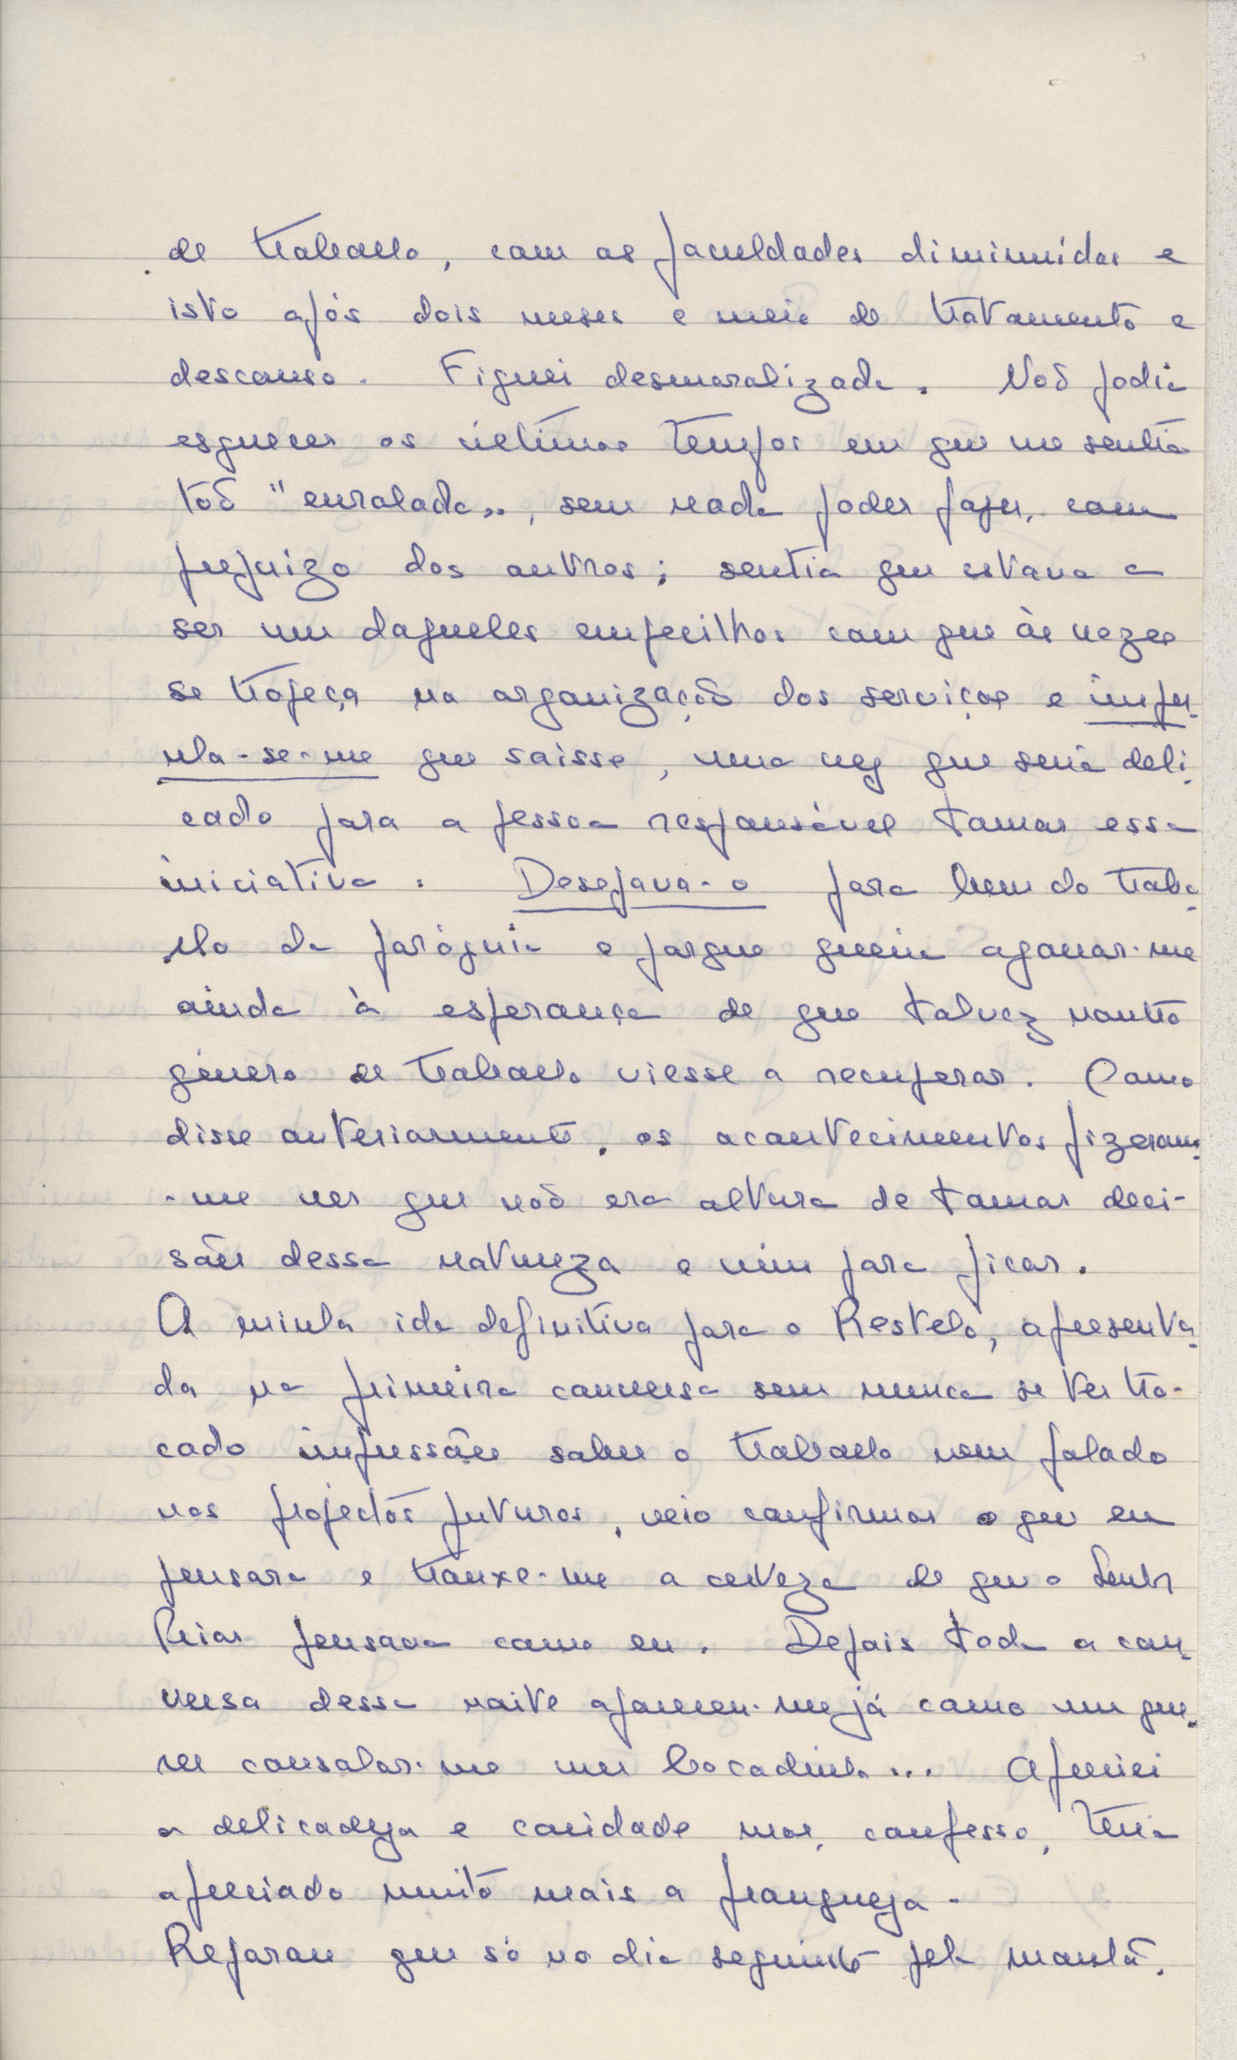 de trabalho, com as faculdades diminuídas e
isto após dois meses e meio de tratamento e
descanso. Fiquei desmoralizada. Não podia
esquecer os últimos tempos em que me sentia
tão "enrolada", sem nada poder fazer, com
prejuizo dos outros; sentia que estava a
ser um daqueles empecilhos com que às vezes
se tropeça na organização dos serviços e impu-
nha-se-me que saisse, uma vez que seria deli-
cado para a pessoa responsável tomar essa
iniciativa. Desejava-o para bem do traba-
lho da paróquia e porque queria agarrar-me
ainda à esperança de que talvez noutro
género de trabalho viesse a recuperar. Como
disse anteriormente, os acontecimentos fizeram-
-me ver que não era altura de tomar deci-
sões dessa natureza e vim para ficar.
A minha ida definitiva para o Restelo, apresenta-
da na primeira conversa sem nunca se ter tro-
cado impressões sobre o trabalho nem falado
nos projectos futuros, veio confirmar o que eu
pensara e trouxe-me a certeza de que o Senhor
Prior pensava como eu. Depois toda a con-
versa dessa noite apareceu-me já como um que-
rer consolar-me um bocadinho... Apreciei
a delicadeza e caridade mas, confesso, teria
apreciado muito mais a franqueza.
Reparou que só no dia seguinte pela manhã,